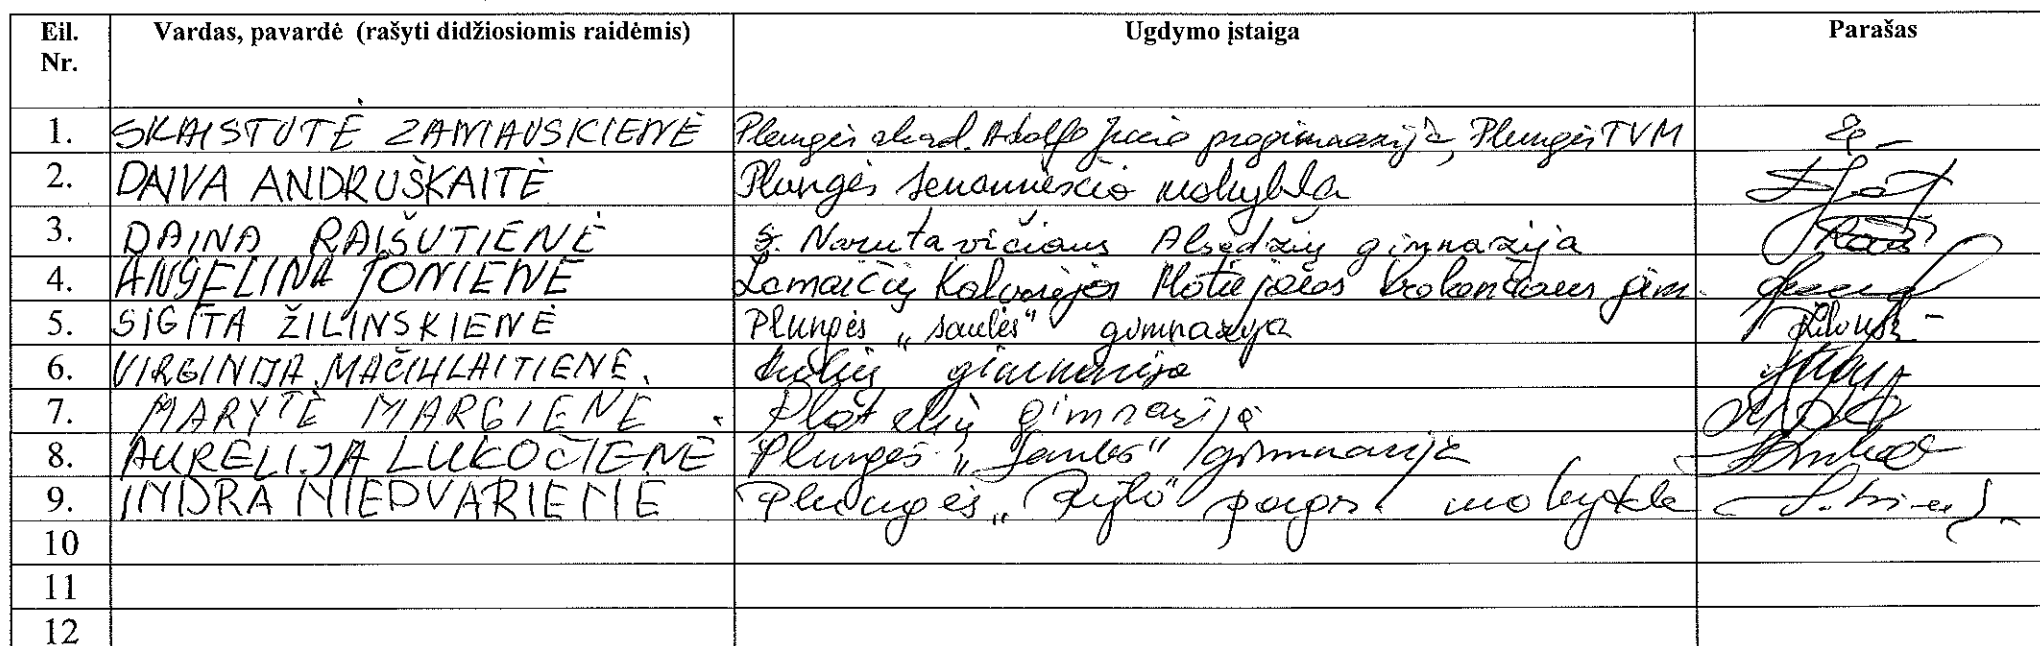 Eil. Nr. Vardas, pavardė (rašyti didžiosiomis raidėmis) Ugdymo įstaiga Parašas
1. SKAISTUTĖ ZAMAUSKIENĖ Plungės akad. Adolfo Jucio progimnazija, Plungės TVM
2. DAIVA ANDRUŠKAITĖ Plungės Senamiesčio mokykla
3. DAINA RAIŠUTIENĖ S. Narutavičiaus Alsėdžių gimnazija
4. ANGELINA JONIENĖ Žemaičių Kalvarijos Motiejaus Valančiaus gim.
5. SIGITA ŽILINSKIENĖ Plungės „Saulės" gimnazija
6. VIRGINIJA MAČIULAITIENĖ. Kulių gimnazija
7. MARYTĖ MARGIENĖ. Platelių gimnazija
8. AURELIJA LUKOČIENĖ Plungės „Saulės" gimnazija
9. INDRA NIEDVARIENĖ Plungės „Ryto" pagr. mokykla
10
11
12